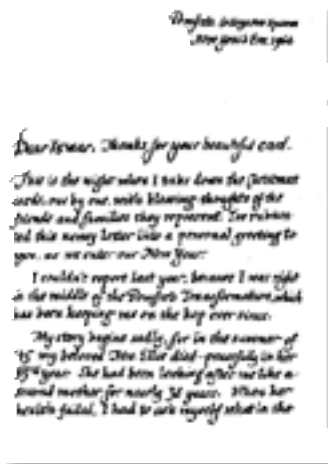 New Year's Eve
Dear Irene, Thanks for your beautiful card.
This is the night when I take down the Christmas
cards, one by one, with blessing-thoughts of the
friends and families they represent. I've
ted this newsy letter into a personal greeting to
you, as we enter our New Year.
I couldn't report last year, because I was right
in the middle of the Transformation, which
has been keeping me on the hop ever since.
My story begins sadly, for in the summer of
my beloved died peacefully in her
year. She had been looking after me like a
second mother for nearly 32 years. When her
health failed, I had to ask myself what in the